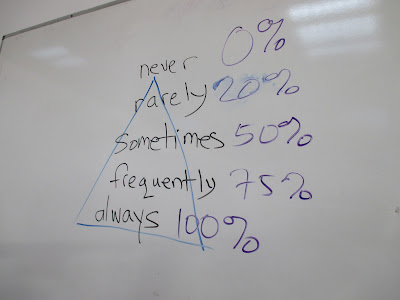 never 0%
rarely 20%
sometimes 50%
frequently 75%
always 100%